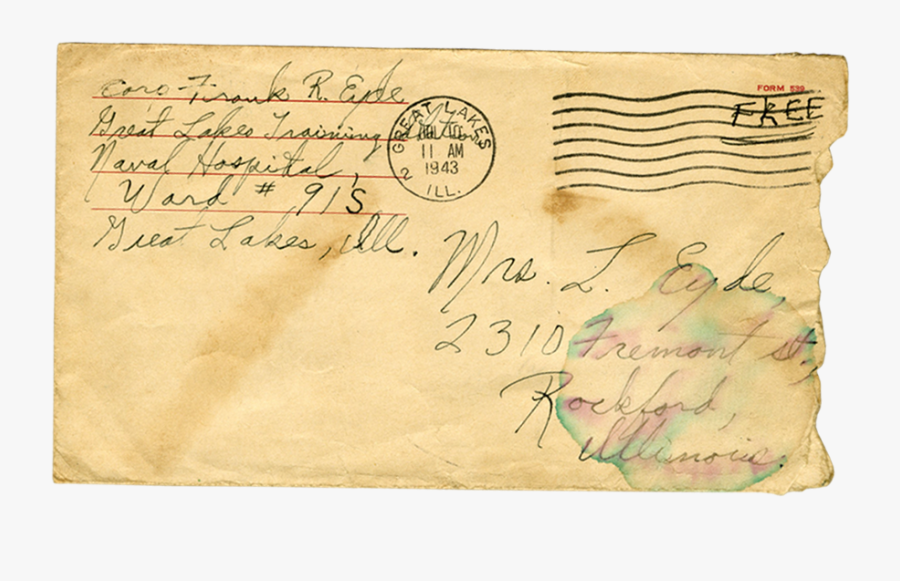 Frank R. Eyde
Great Lakes Training
Naval Hospital,
Ward # 91'S
Great Lakes, Ill.
GREAT LAKES
11 AM
1943
ILL.
2
FORM 539
FREE
Mrs. L. Eyde,
2310 Fremont St.,
Rockford,
Illinois.